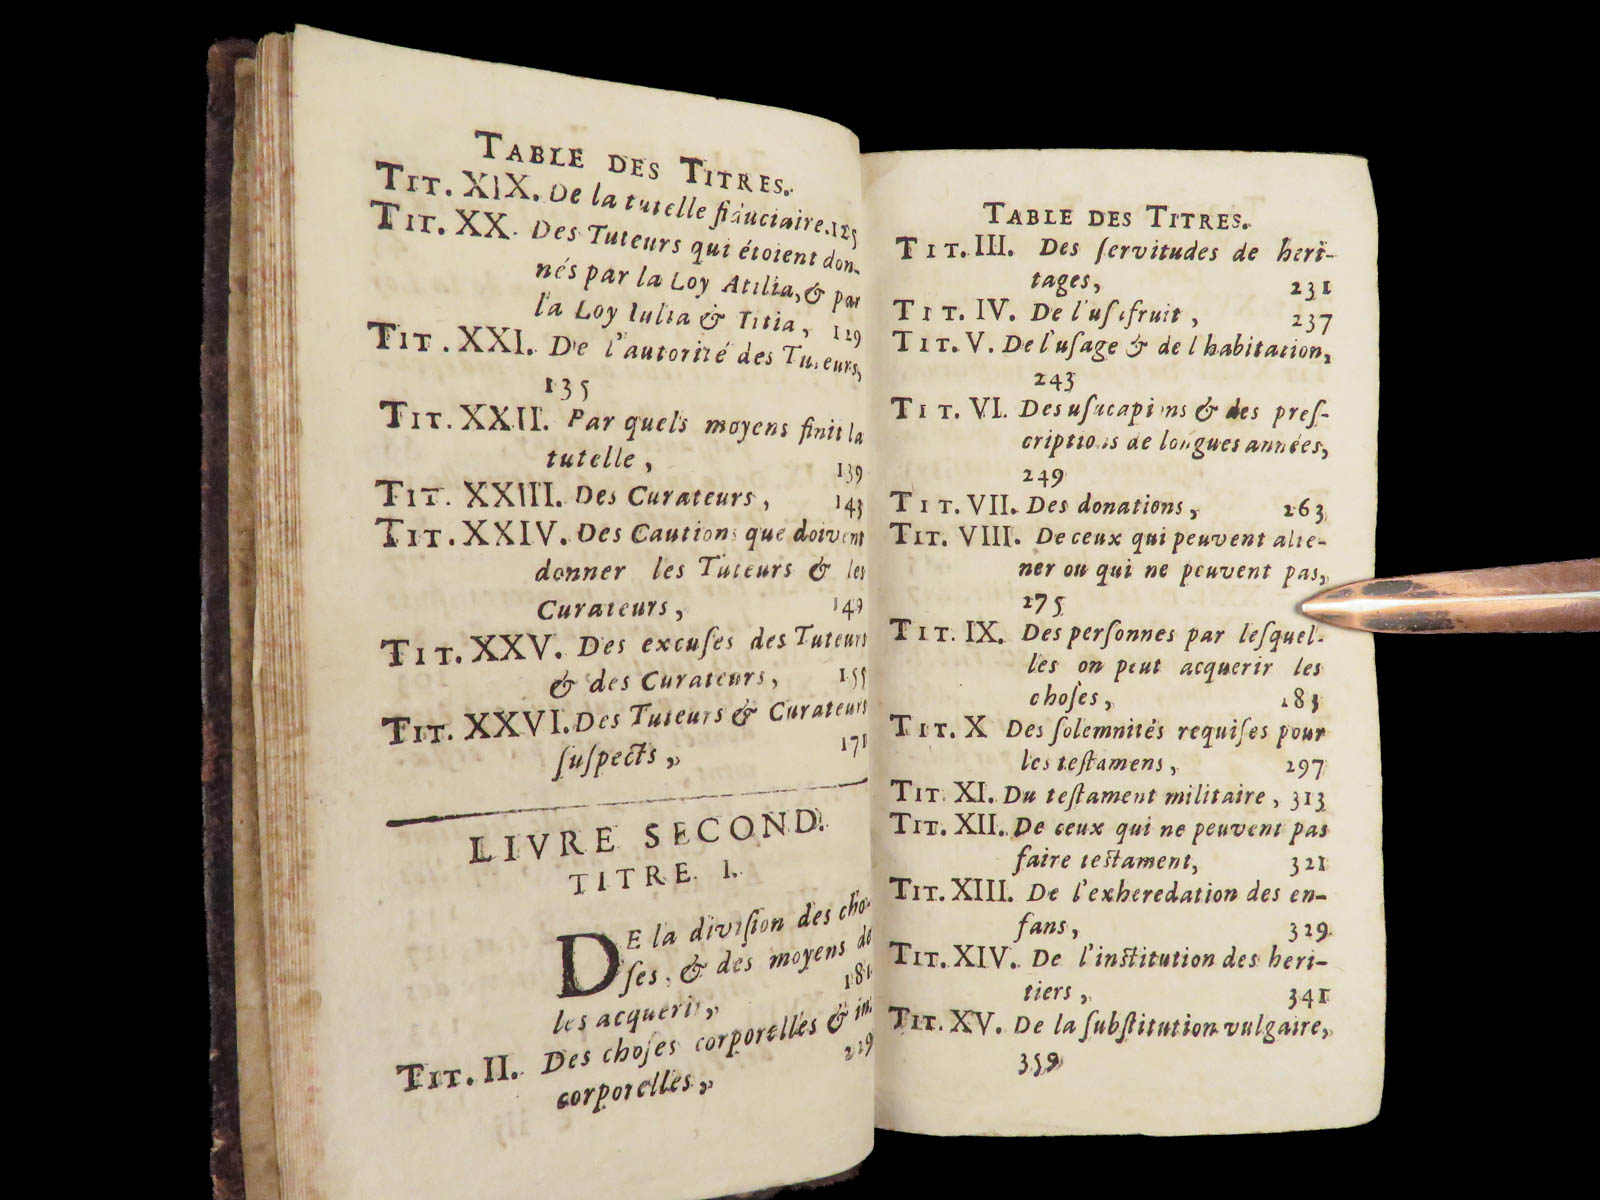 TABLE DES TITRES.
TIT. XIX. De la tutelle fiduciaire. 125
TIT. XX. Des Tuteurs qui étoient don-
nés par la Loy Atilia, & par
la Loy Iulia & Titia, 129
TIT. XXI. De l'autorité des Tuteurs,
135
TIT. XXII. Par quels moyens finit la
tutelle, 139
TIT. XXIII. Des Curateurs, 143
TIT. XXIV. Des Cautions que doivent
donner les Tuteurs & les
Curateurs, 149
TIT. XXV. Des excuſes des Tuteurs
& des Curateurs, 155
TIT. XXVI. Des Tuteurs & Curateurs
ſuſpects, 171
LIVRE SECOND.
TITRE I.
DE la diviſion des cho-
ſes, & des moyens de
les acquerir, 181
TIT. II. Des choſes corporelles & in-
corporelles, 229
TABLE DES TITRES.
TIT. III. Des ſervitudes de heri-
tages, 231
TIT. IV. De l'uſufruit, 237
TIT. V. De l'uſage & de l'habitation,
243
TIT. VI. Des uſucapions & des preſ-
criptions de longues années,
249
TIT. VII. Des donations, 263
TIT. VIII. De ceux qui peuvent alie-
ner ou qui ne peuvent pas,
275
TIT. IX. Des perſonnes par leſquel-
les on peut acquerir les
choſes, 183
TIT. X Des ſolemnités requiſes pour
les teſtamens, 297
TIT. XI. Du teſtament militaire, 313
TIT. XII. De ceux qui ne peuvent pas
faire teſtament, 321
TIT. XIII. De l'exheredation des en-
fans, 329
TIT. XIV. De l'inſtitution des heri-
tiers, 341
TIT. XV. De la ſubſtitution vulgaire,
359